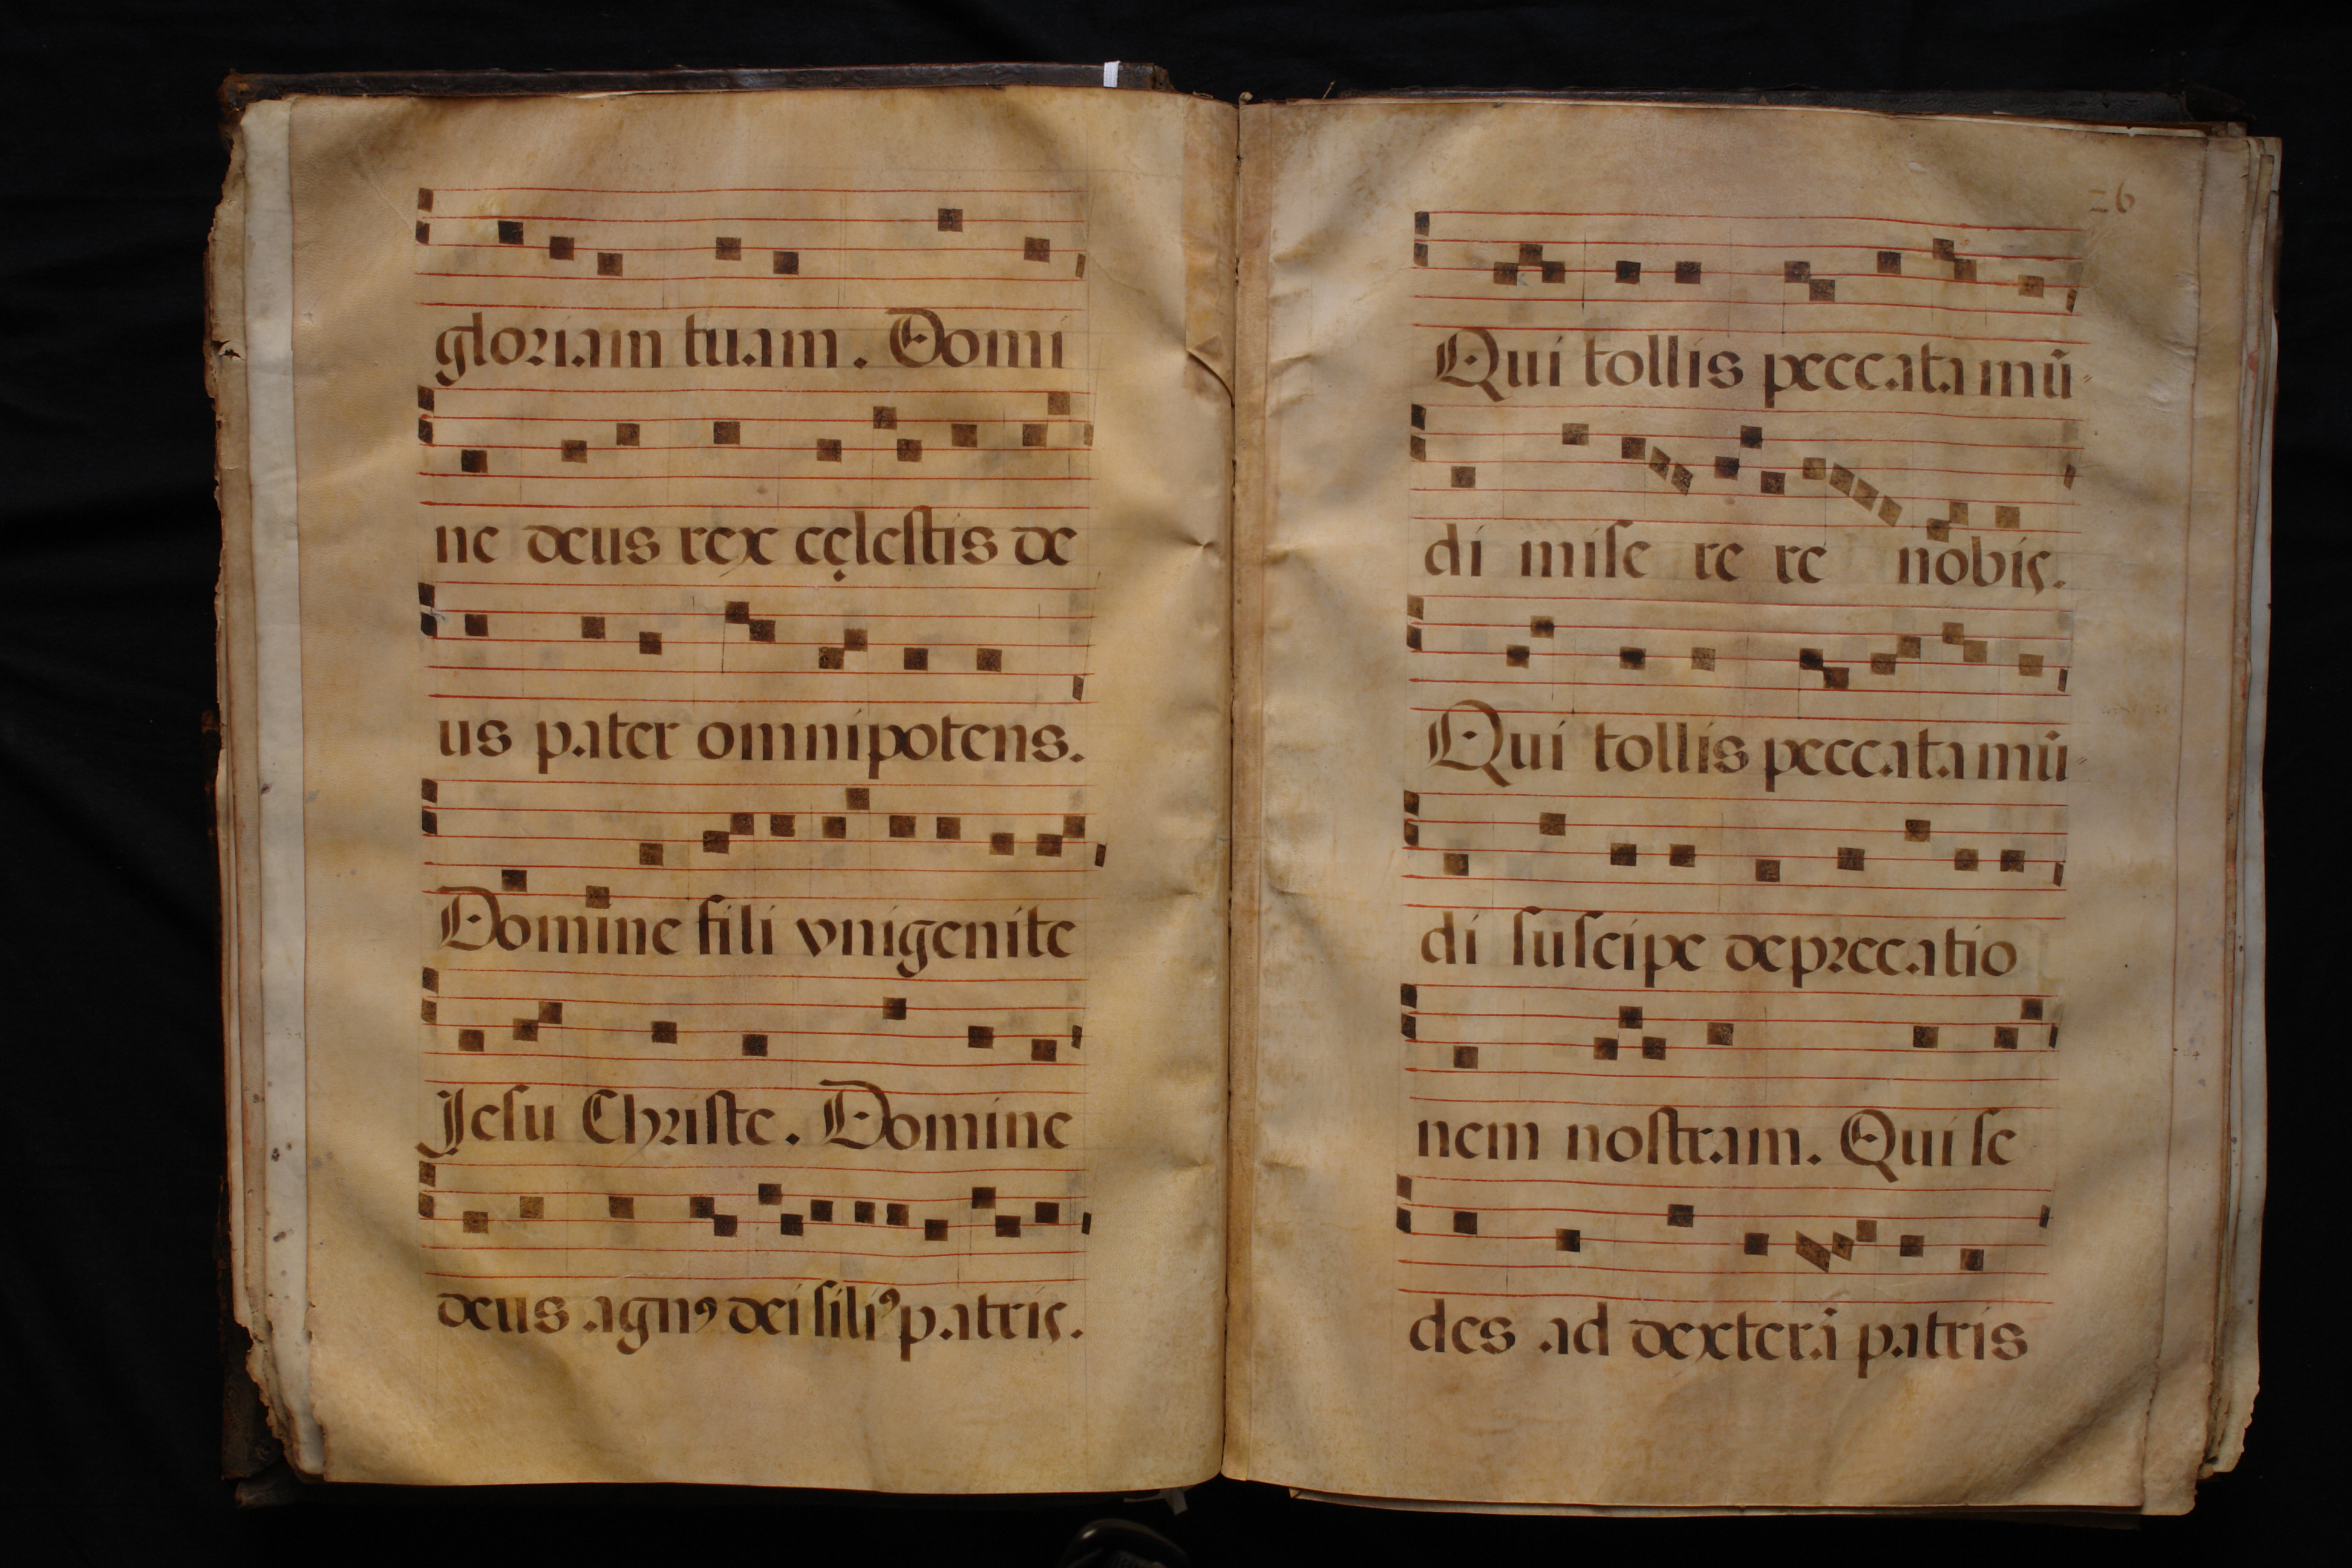 gloriam tuam. Domi
ne deus rex cęlestis de
us pater omnipotens.
Domine fili vnigenite
Jesu Christe. Domine
deus agnꝰ dei filiꝰ patris.
26
Qui tollis peccata mū-
di misere re nobis.
Qui tollis peccata mū-
di suscipe deprecatio
nem nostram. Qui se
des ad dexterā patris